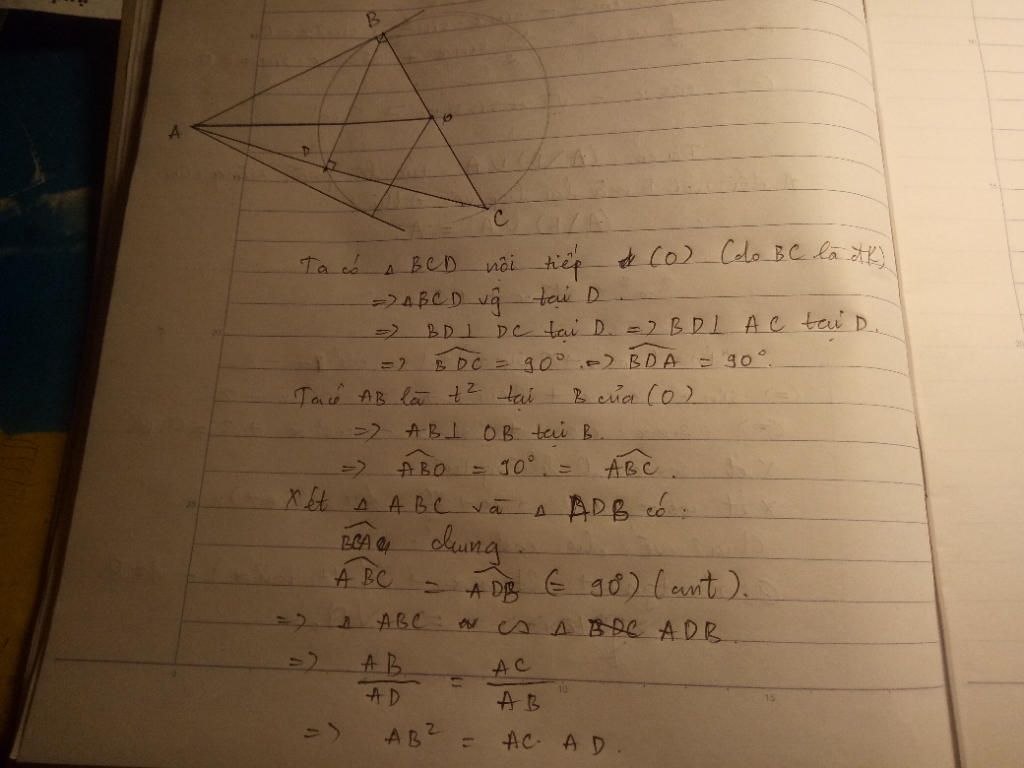 B
A
O
D
C
Ta có △ BCD nội tiếp (O) (do BC là đK)
=> △BCD vg tại D.
=> BD⊥ DC tại D. => BD⊥ AC tại D.
=> BDC = 90°. => BDA = 90°.
Ta có AB là t² tại B của (O)
=> AB⊥ OB tại B.
=> ABO = 90°. = ABC.
Xét △ ABC và △ ADB có:
BCA chung.
ABC = ADB (= 90°) (cmt).
=> △ ABC ∽ △ ADB
=> AB/AD = AC/AB
=> AB² = AC. AD.